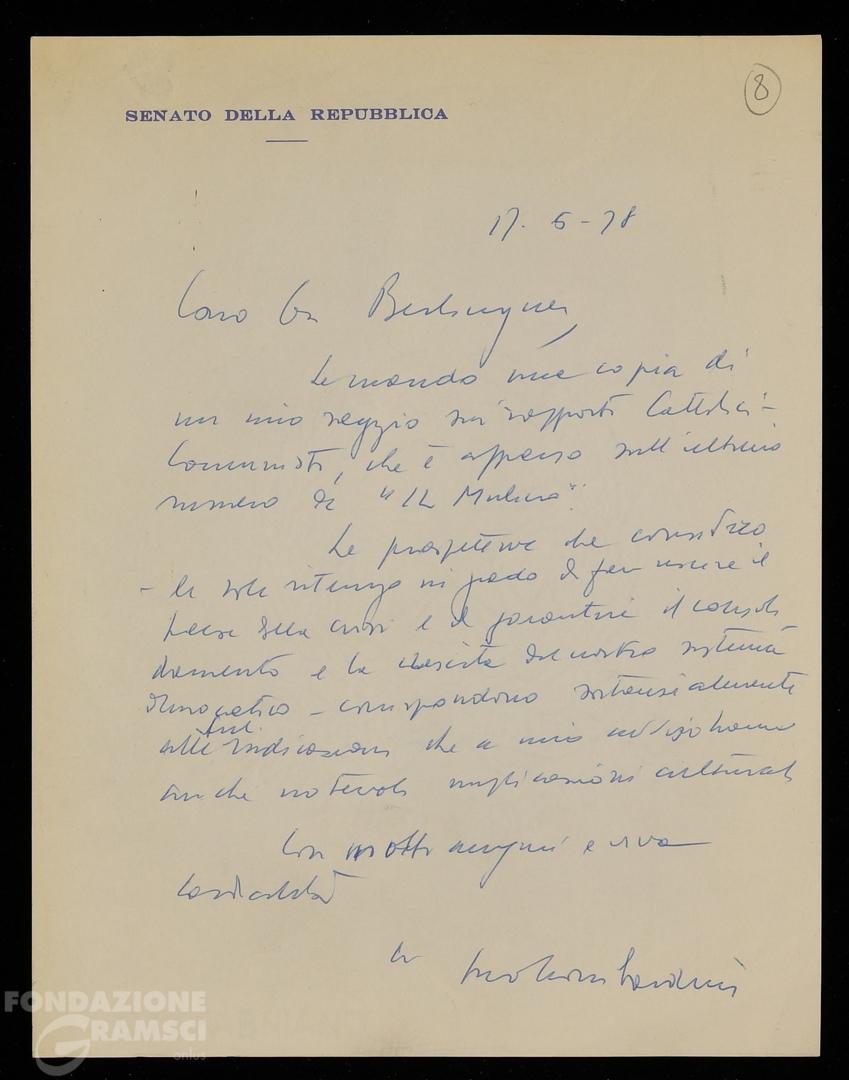 8
SENATO DELLA REPUBBLICA
17. 6-78
Caro On Berlinguer,
Le mando una copia di
un mio saggio sui rapporti Cattolici-
Comunisti, che è apparso sull'ultimo
numero de "IL Mulino".
Le prospettive che considero
- le sole ritengo in grado di far uscire il
paese dalla crisi e di garantire il consoli
damento e la crescita del nostro sistema
democratico - corrispondono sostanzialmente
alle Sue indicazioni che a mio avviso hanno
anche notevoli implicazioni culturali
Con molti auguri e viva
cordialità
Siro Lombardini
FONDAZIONE
GRAMSCI
onlus